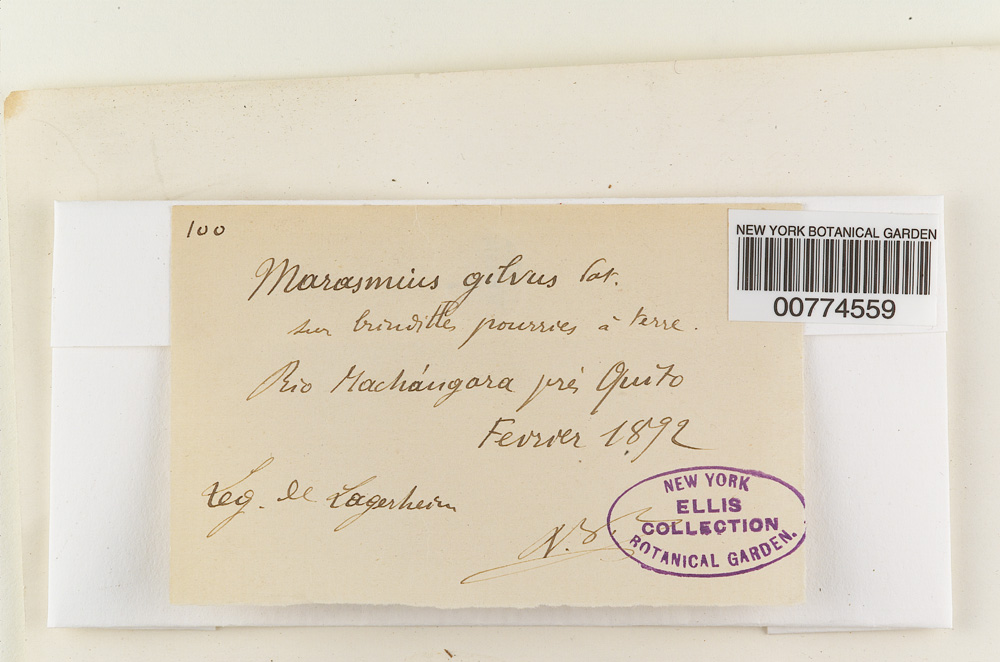 100
NEW YORK BOTANICAL GARDEN
00774559
Marasmius gilvus Pat.
sur brindilles pourries à terre.
Rio Machángara près Quito
Fevrier 1892
Leg. de Lagerheim
NEW YORK
ELLIS
COLLECTION
BOTANICAL GARDEN.